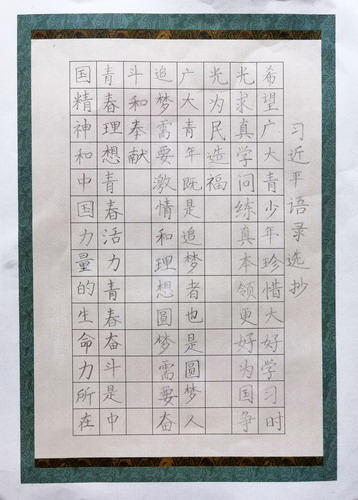 习近平语录选抄
希望广大青少年珍惜大好学习时
光求真学问练真本领更好为国争
光为民造福
广大青年既是追梦者也是圆梦人
追梦需要激情和理想圆梦需要奋
斗和奉献
青春理想青春活力青春奋斗是中
国精神和中国力量的生命力所在